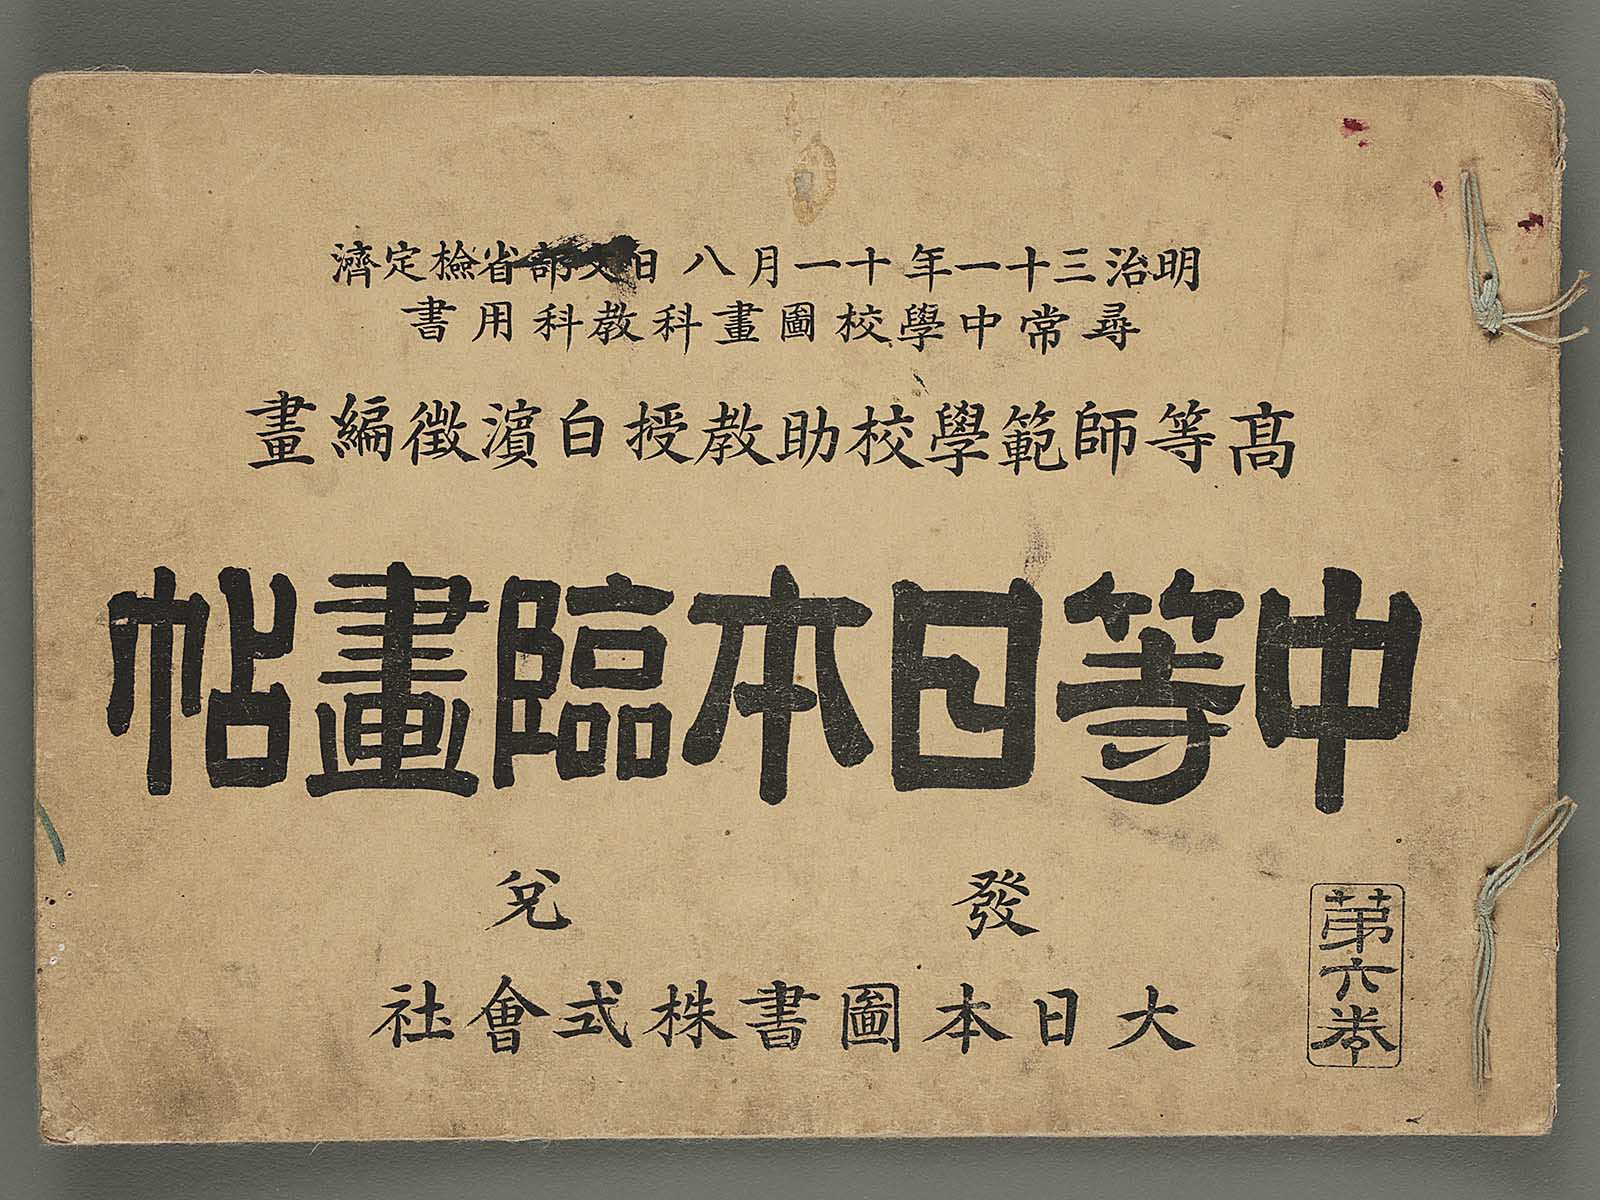 明治三十一年十一月八日文部省檢定濟
尋常中學校圖畫科教科用書
高等師範學校助教授白濵徵編畫
中等日本臨畫帖
第六卷
發兌
大日本圖書株式會社